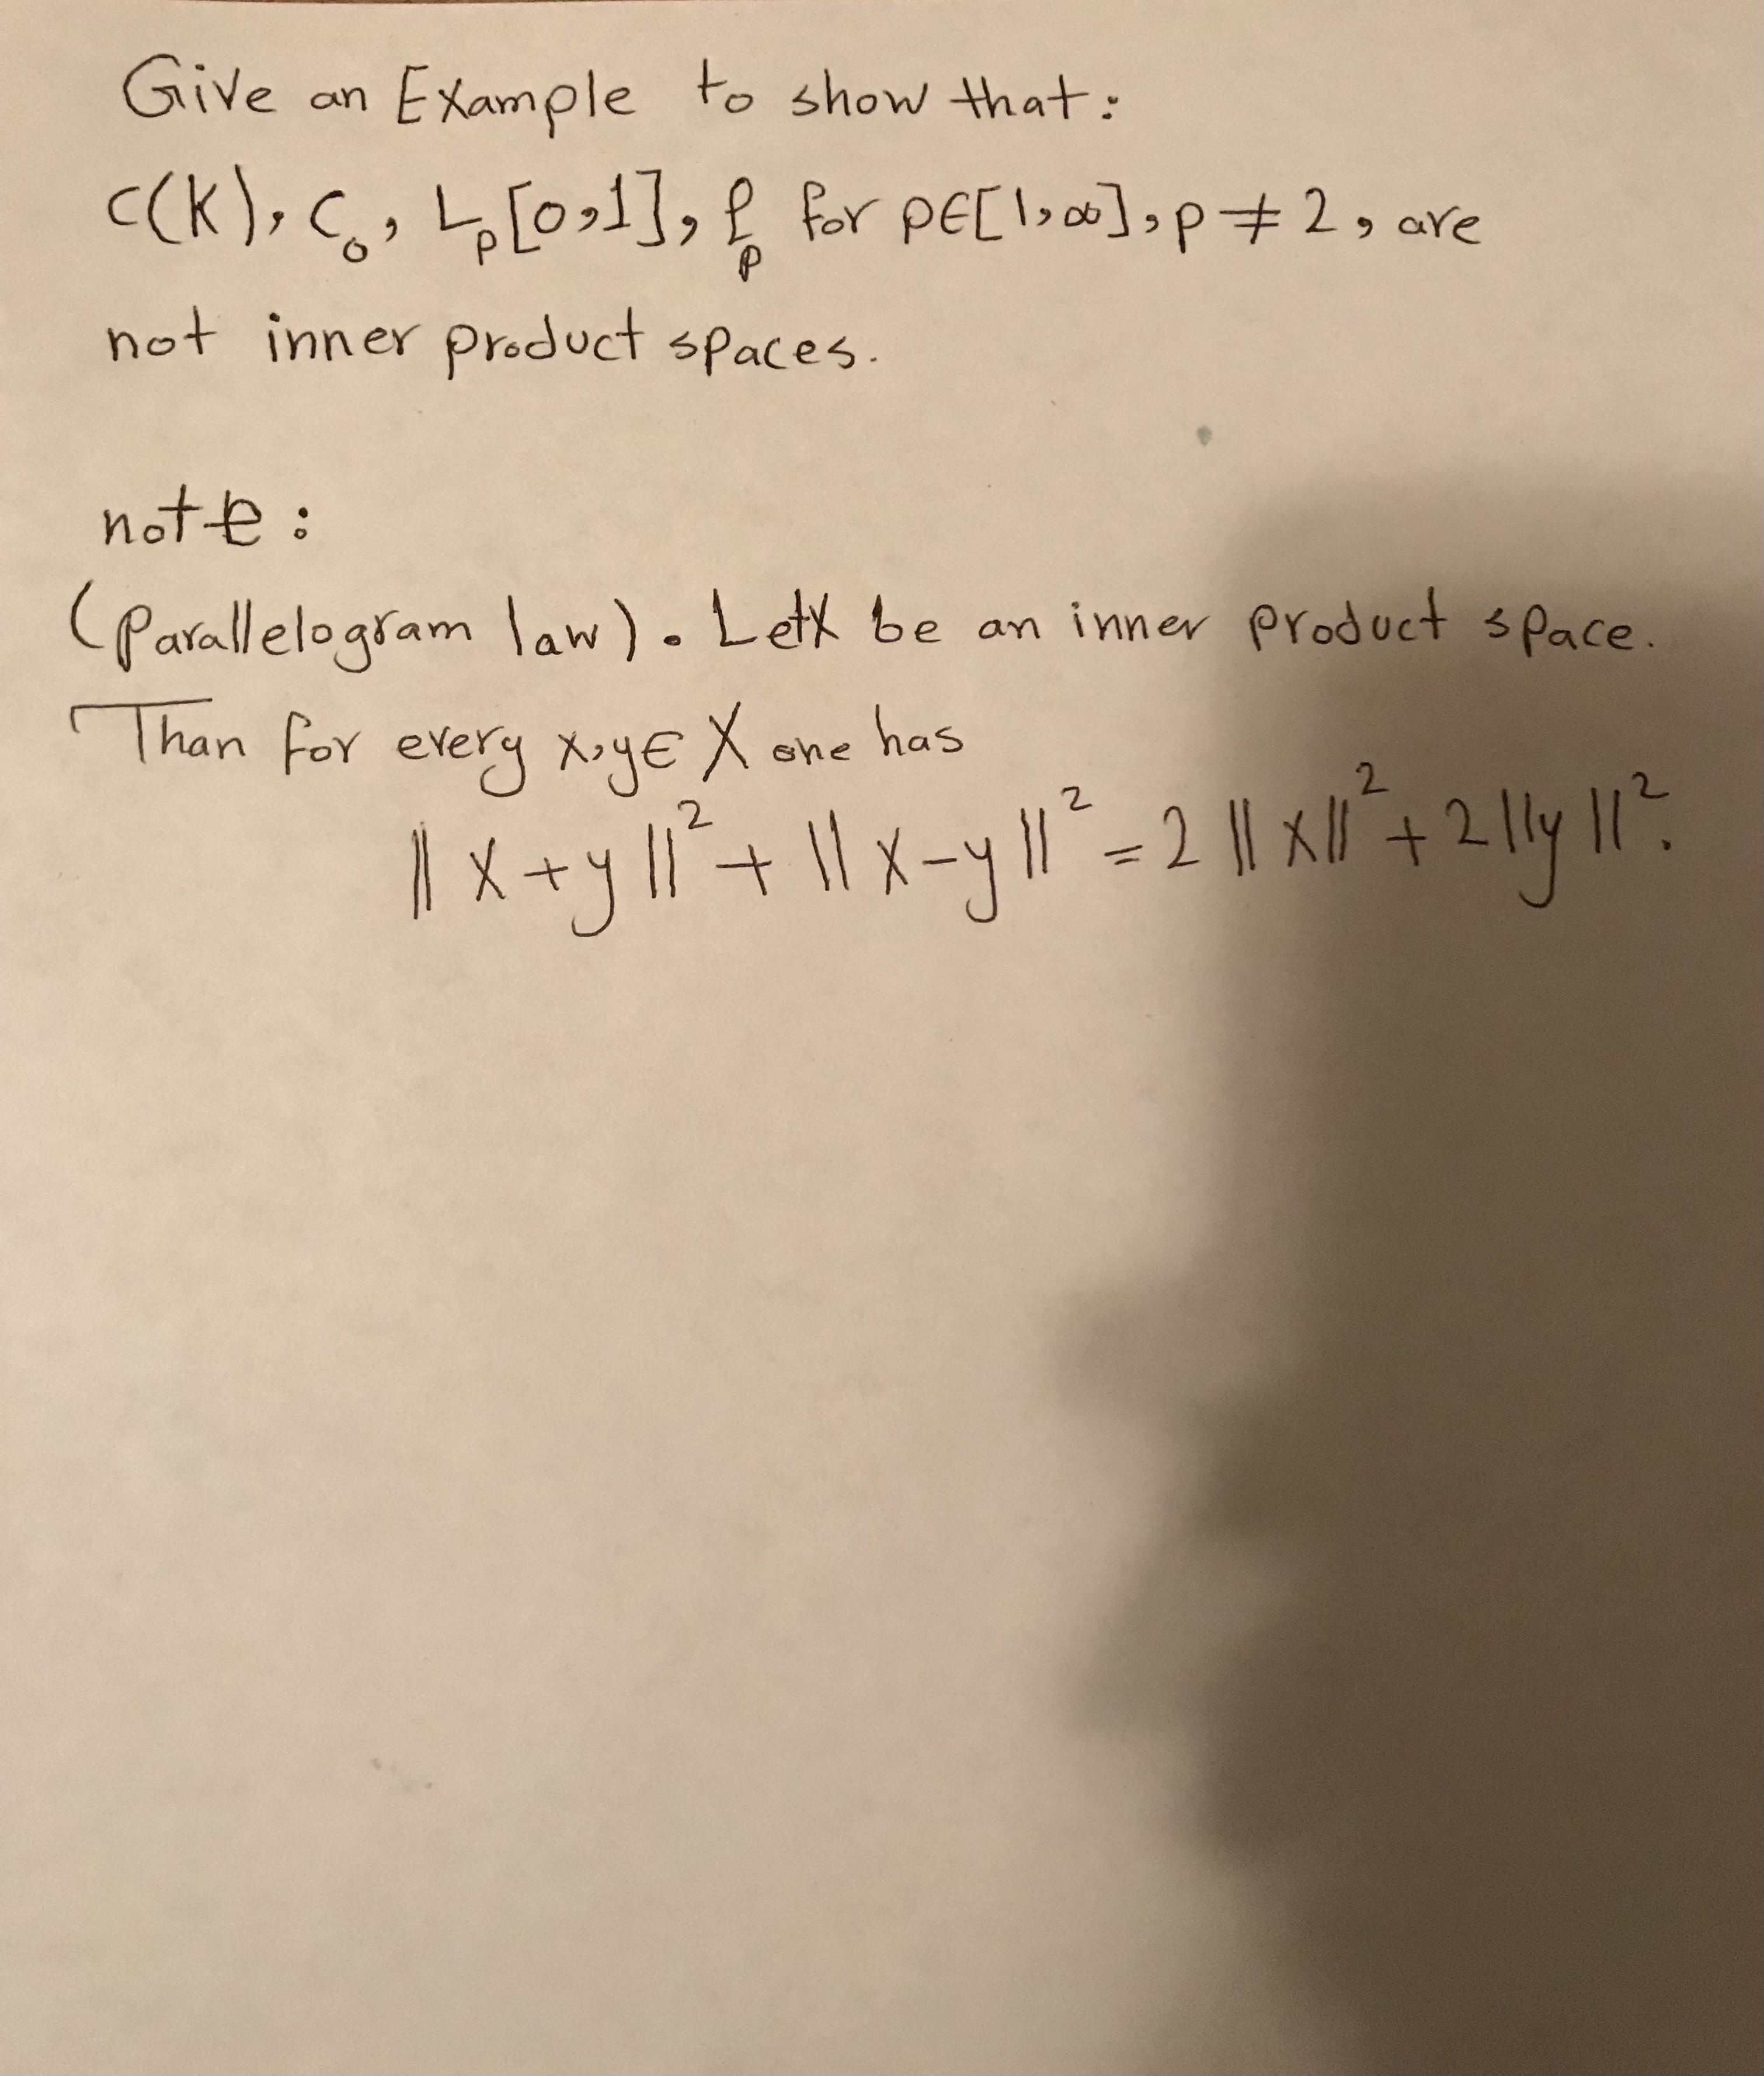 Give an Example to show that:
C(K), C₀, Lₚ[0,1], ℓₚ for p∈[1,∞], p≠2, are
not inner product spaces.
note:
(Parallelogram law). Let X be an inner product space.
Than for every x,y∈ X one has
‖x+y‖²+‖x-y‖²=2‖x‖²+2‖y‖².